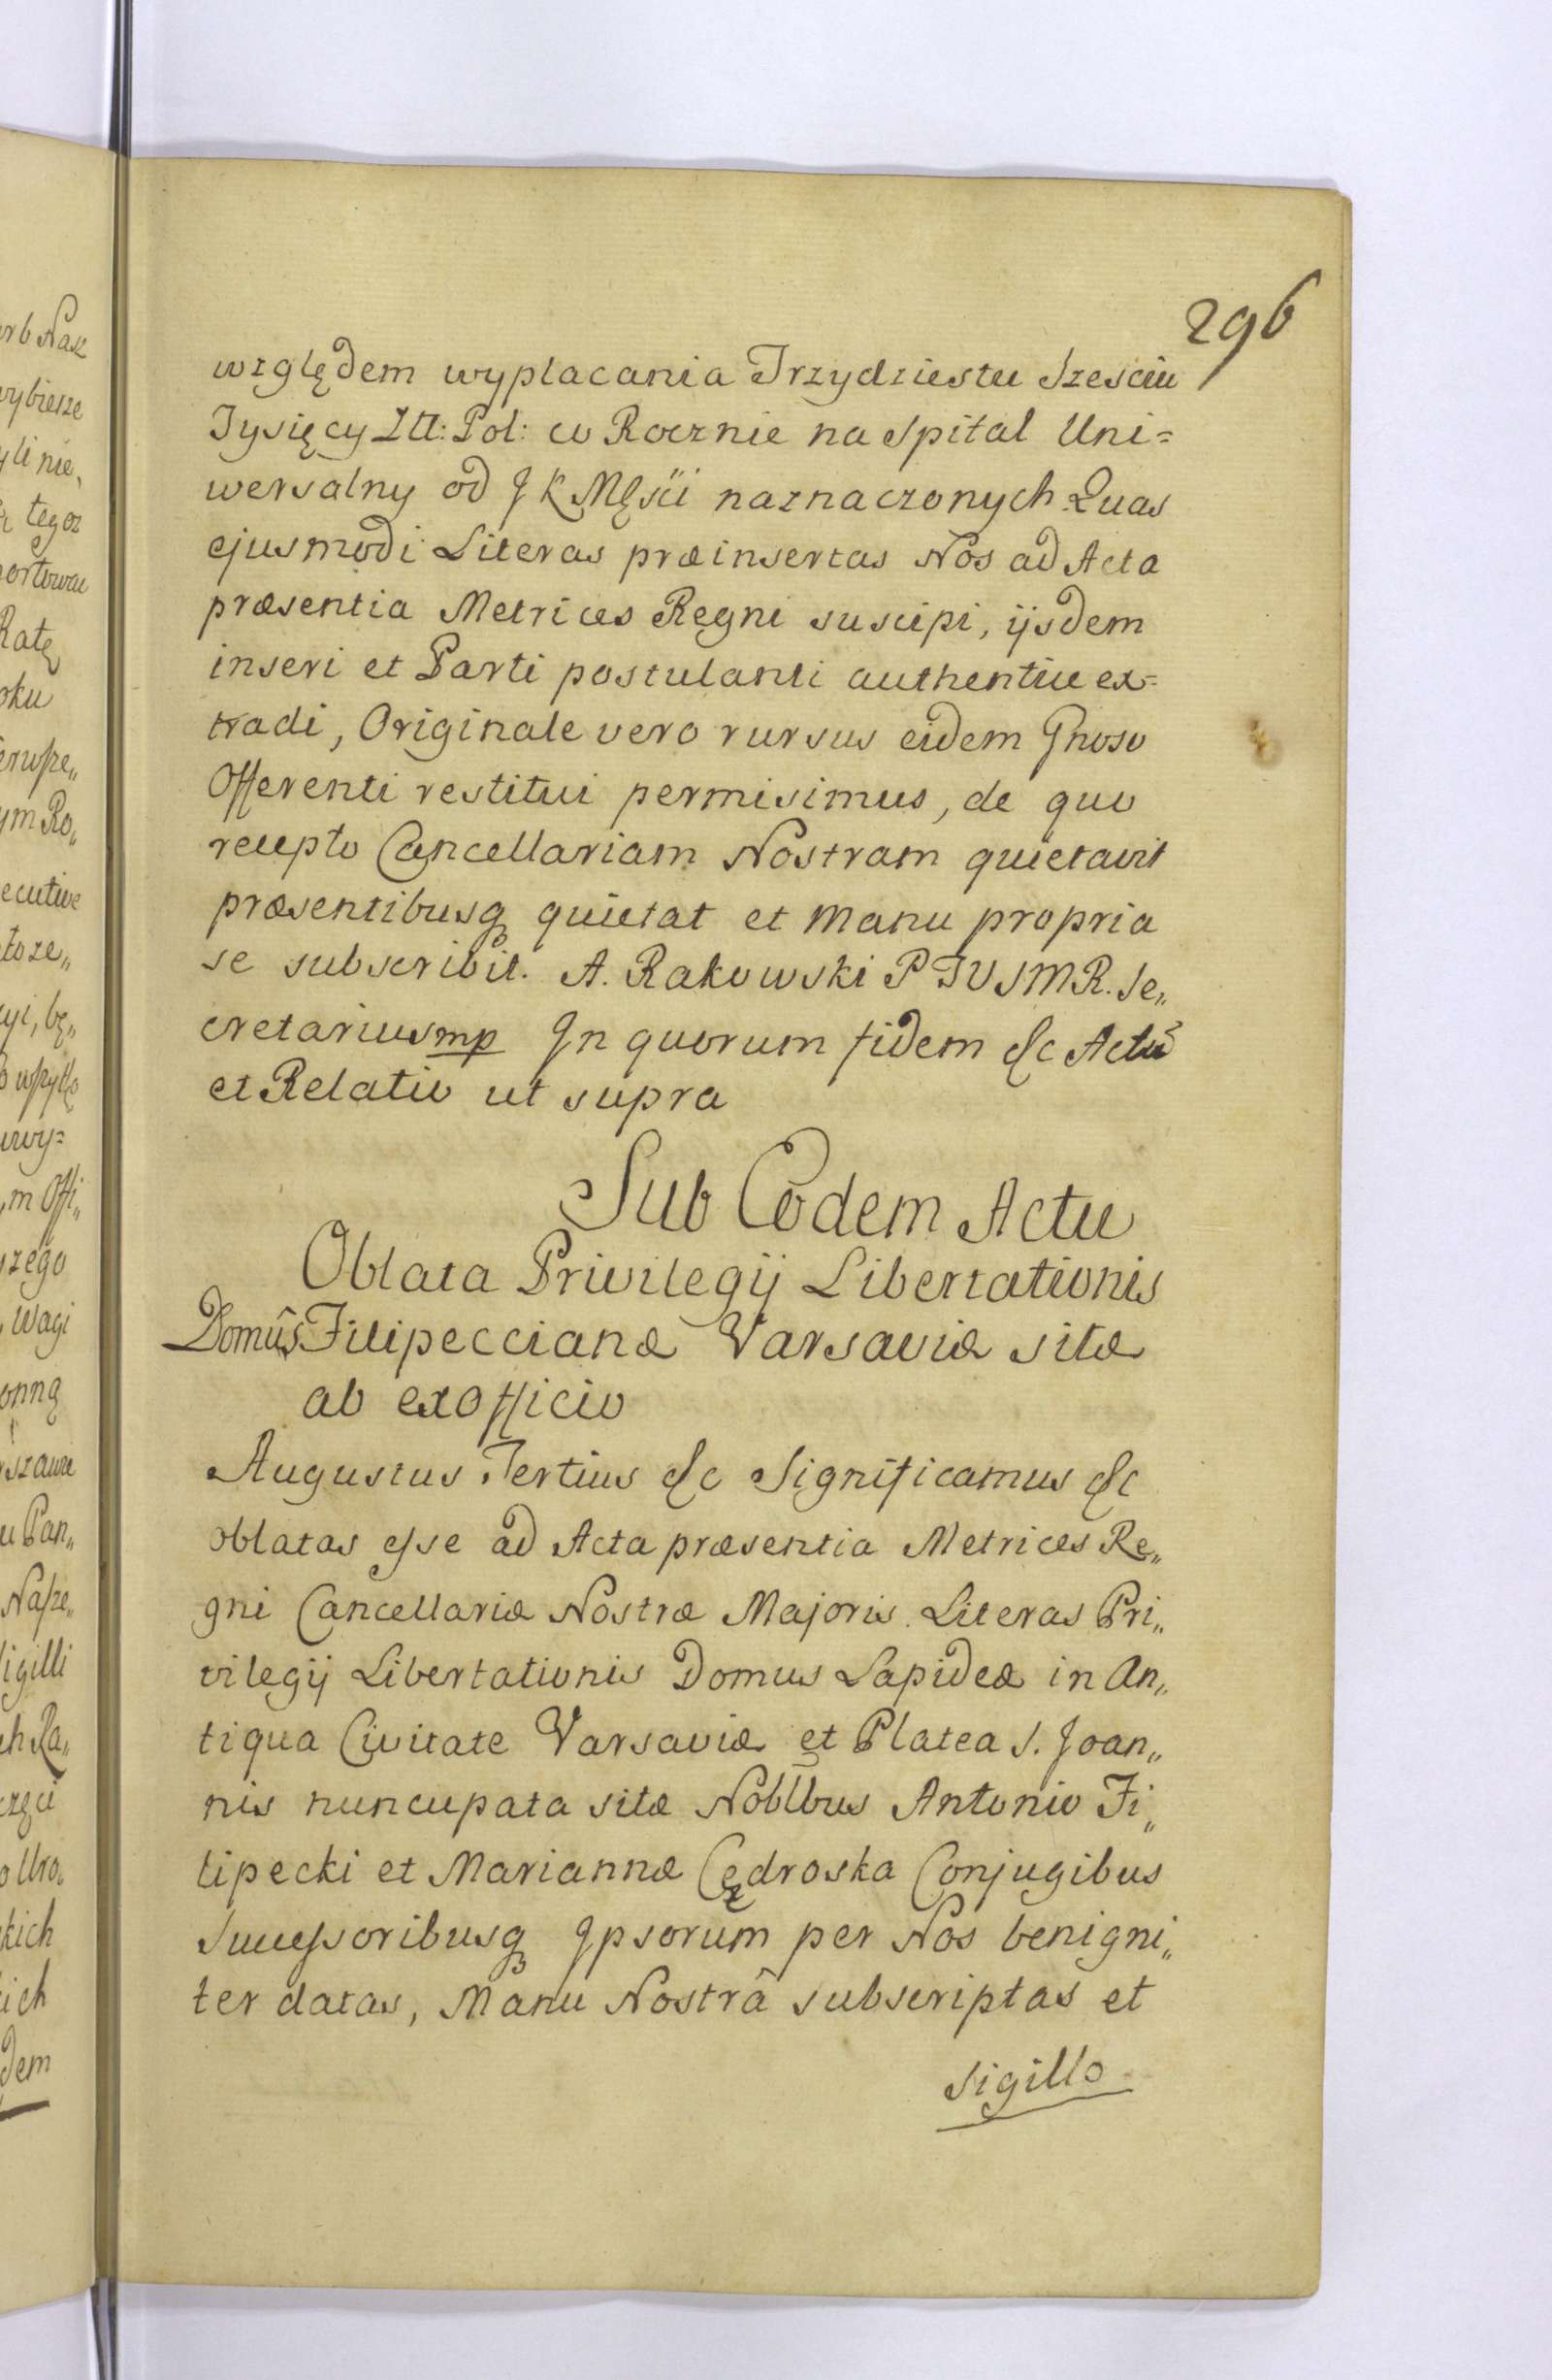 296
względem wyplacania Trzydziestu Szesciu
Tysięcy Zll: Pol: co Rocznie na Spital Uni=
wersalny od J K Męści naznaczonych Quas
ejusmodi Literas præinsertas Nos ad Acta
præsentia Metrices Regni suscipi, ijsdem
inseri et Parti postulanti authentice ex=
tradi, Originale vero rursus eidem Gnoso
Offerenti restitui permisimus, de quo
recepto Cancellariam Nostram quietavit
præsentibusq quietat et Manu propria
se subscribit. A. Rakowski P T V S M R. Se„
cretarius mp In quorum fidem &c Actũ
et Relatio ut supra
Sub Eodem Actu
Oblata Privilegij Libertationis
Domûs Filipeccianæ Varsaviæ sitæ
ab exofficio
Augustus Tertius &c Significamus &c
oblatas esse ad Acta præsentia Metrices Re„
gni Cancellariæ Nostræ Majoris Literas Pri„
vilegij Libertationis Domus Lapideæ in An„
tiqua Civitate Varsaviæ et Platea S. Joan„
nis nuncupata sitæ Nobllbus Antonio Fi„
lipecki et Mariannæ Cędroska Conjugibus
Successoribusq Ipsorum per Nos benigni„
ter datas, Manu Nostrâ subscriptas et
Sigillo